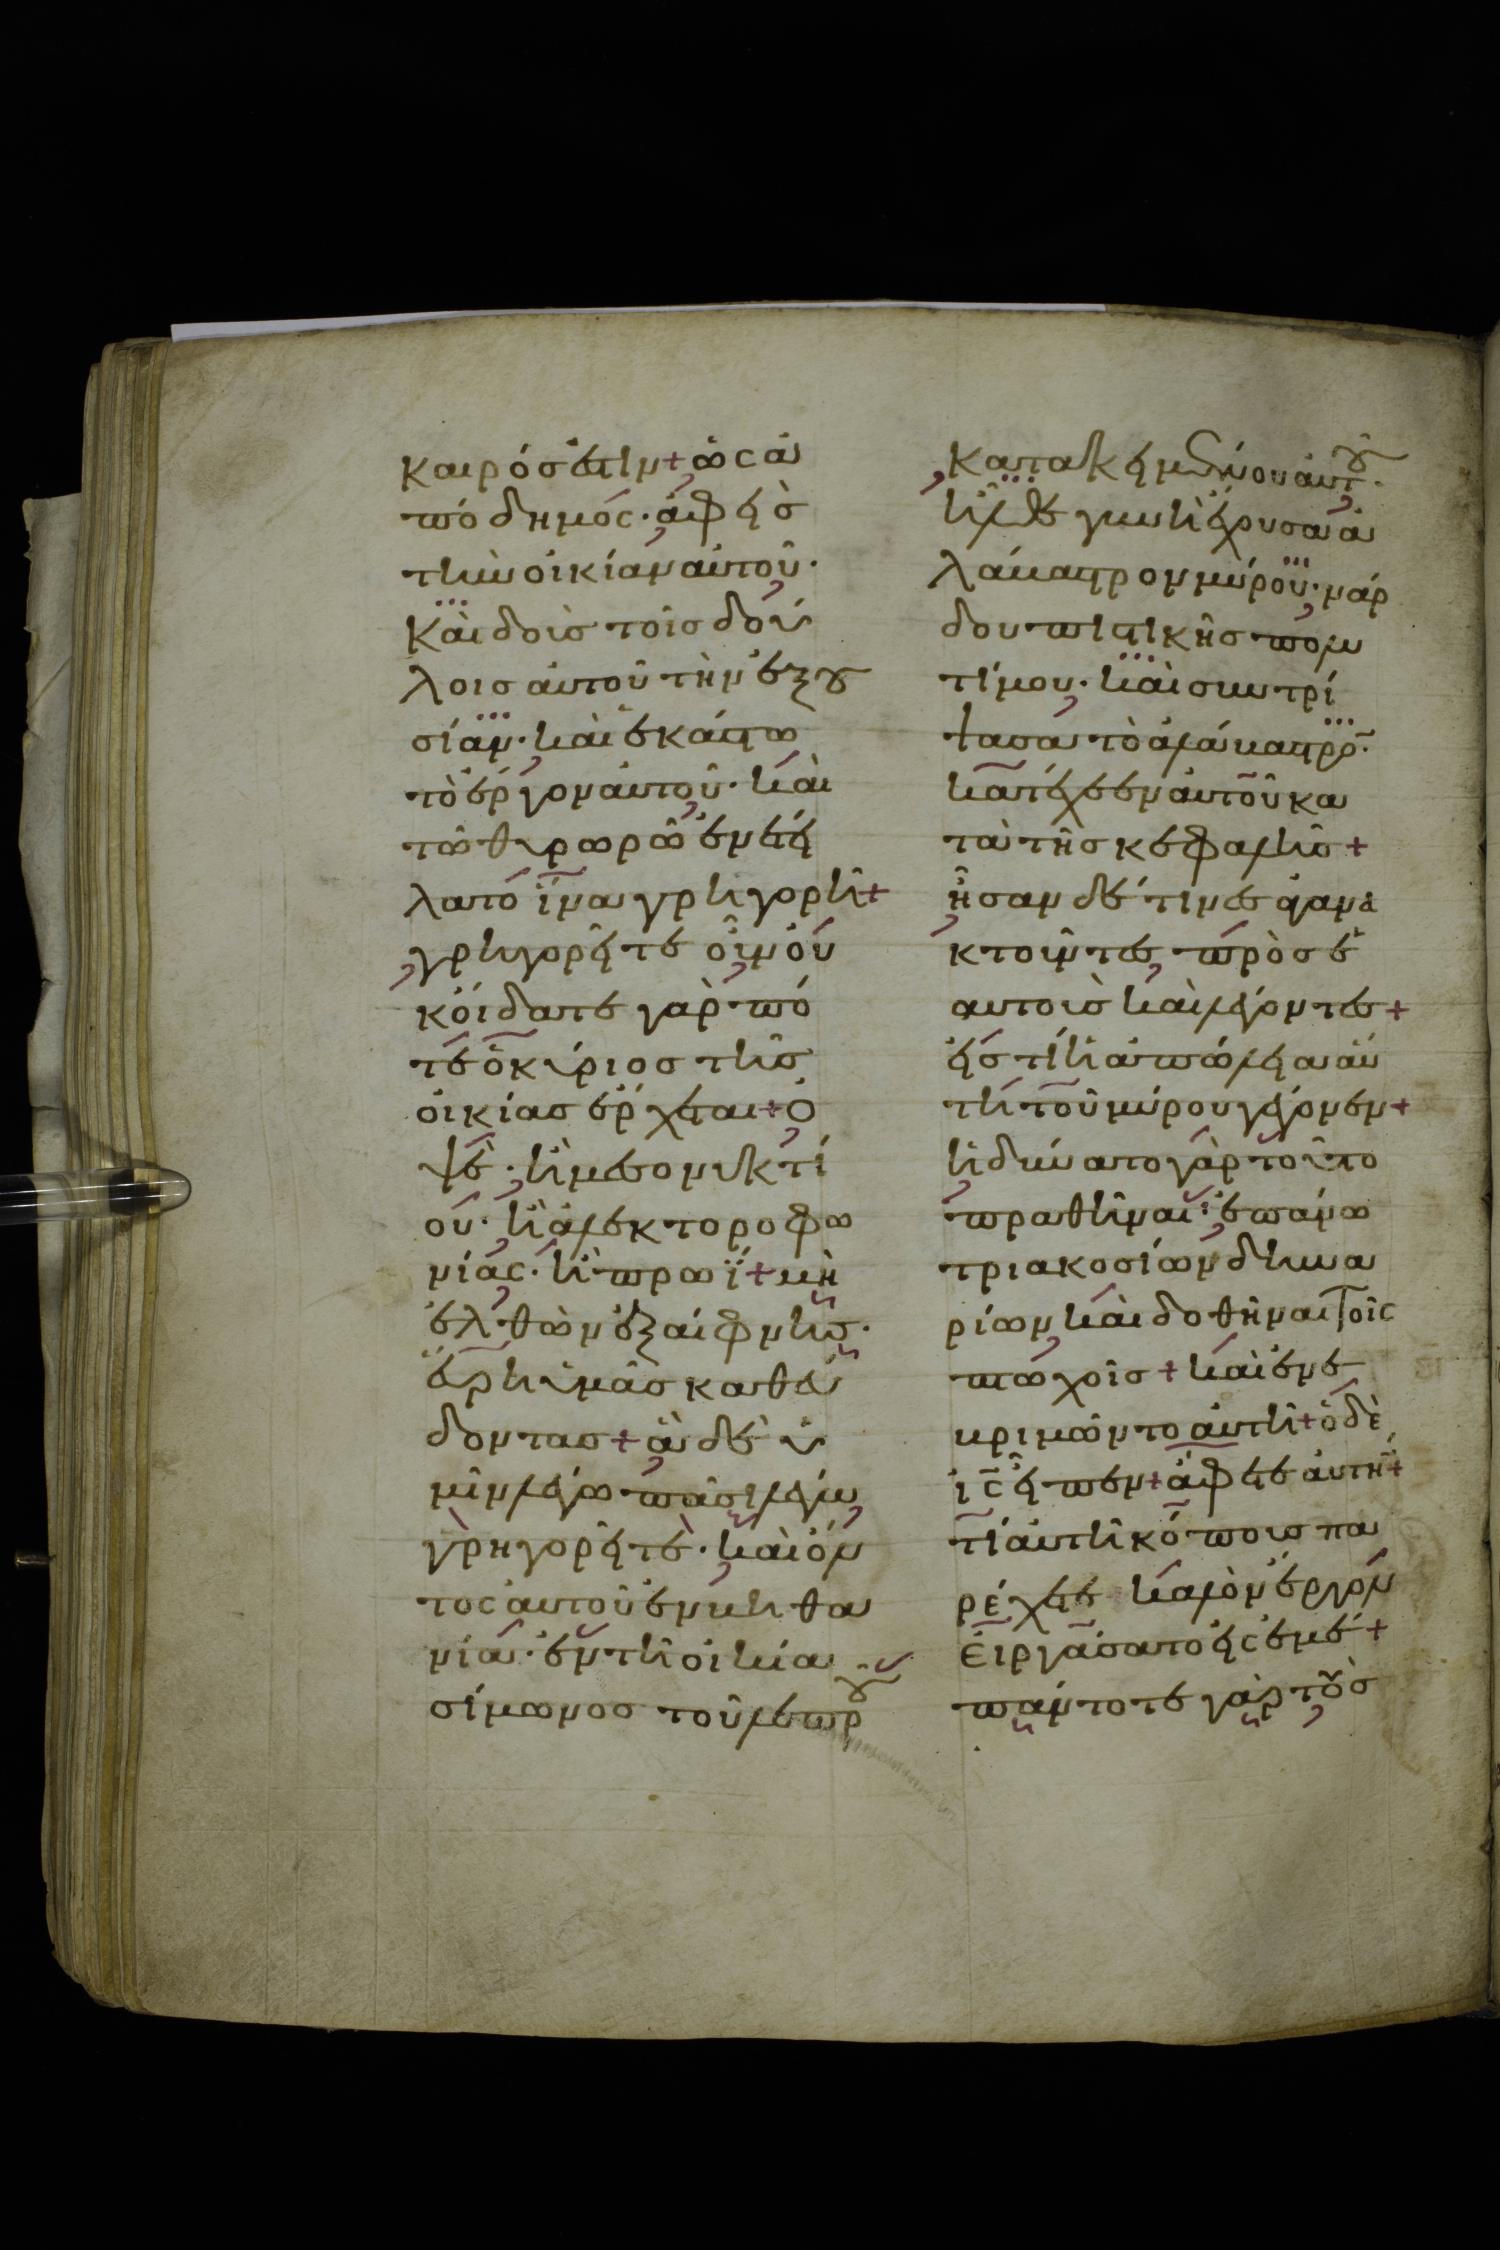 καιρός ἐστιν + ὡς ἄ
πόδημος · ἀφεὶς
τὴν οἰκίαν αὐτοῦ ·
Καὶ δοὺς τοῖς δού
λοις αὐτοῦ τὴν ἐξου
σίαν · καὶ ἑκάστω
τὸ ἔργον αὐτοῦ · καὶ
τῶ θυρωρῶ ἐνετεί
λατο ἵνα γρηγορῆ +
γρηγορεῖτε οὖν οὐ
κ οἴδατε γὰρ πό
τε ὁ κύριος τῆς
οἰκίας ἔρχεται + ὀ
ψὲ · ἢ μεσονυκτί
ου · ἢ ἀλεκτοροφω
νίας · ἢ πρωΐ + μὴ
ἐλθὼν ἐξαίφνης ·
εὕρη ὑμᾶς καθεύ
δοντας + ἃ δὲ ὑ
μῖν λέγω πᾶσι λέγω
γρηγορεῖτε · καὶ ὄν
τος αὐτοῦ ἐν βηθα
νία · ἐν τῆ οἰκία
σίμωνος τοῦ λεπροῦ
κατακειμένου αὐτοῦ ·
ἦλθε γυνὴ ἔχουσα ἀ
λάβαστρον μύρου · νάρ
δου πιστικῆς πολυ
τίμου · καὶ συντρί
ψασα τὸ ἀλάβαστρον ·
κατέχεεν αὐτοῦ κα
τὰ τῆς κεφαλῆς +
ἦσαν δέ τινες ἀγανα
κτοῦντες πρὸς ἑ
αυτοὺς καὶ λέγοντες +
εἰς τί ἡ ἀπώλεια αὕ
τη τοῦ μύρου γέγονεν +
ἠδύνατο γὰρ τοῦτο
πραθῆναι ἐπάνω
τριακοσίων δηνα
ρίων καὶ δοθῆναι τοῖς
πτωχοῖς + καὶ ἐνε
βριμῶντο αὐτῆ + ὁ δὲ
ις εἶπεν + ἄφετε αὐτήν +
τί αὐτῆ κόπους πα
ρέχετε καλὸν ἔργον
εἰργάσατο εἰς ἐμέ +
πάντοτε γὰρ τοὺς